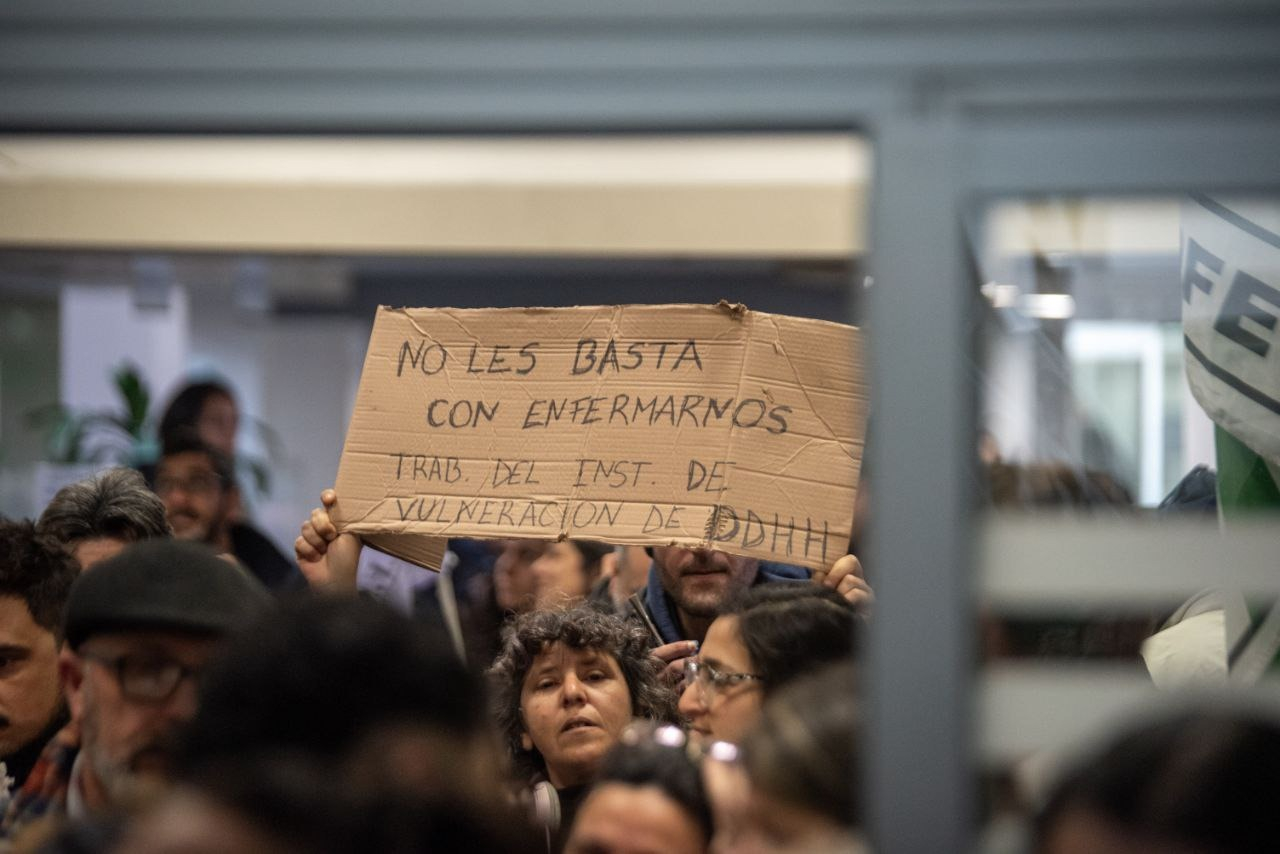 NO LES BASTA
CON ENFERMARNOS
TRAB. DEL INST. DE
VULNERACION DE DDHH
FE